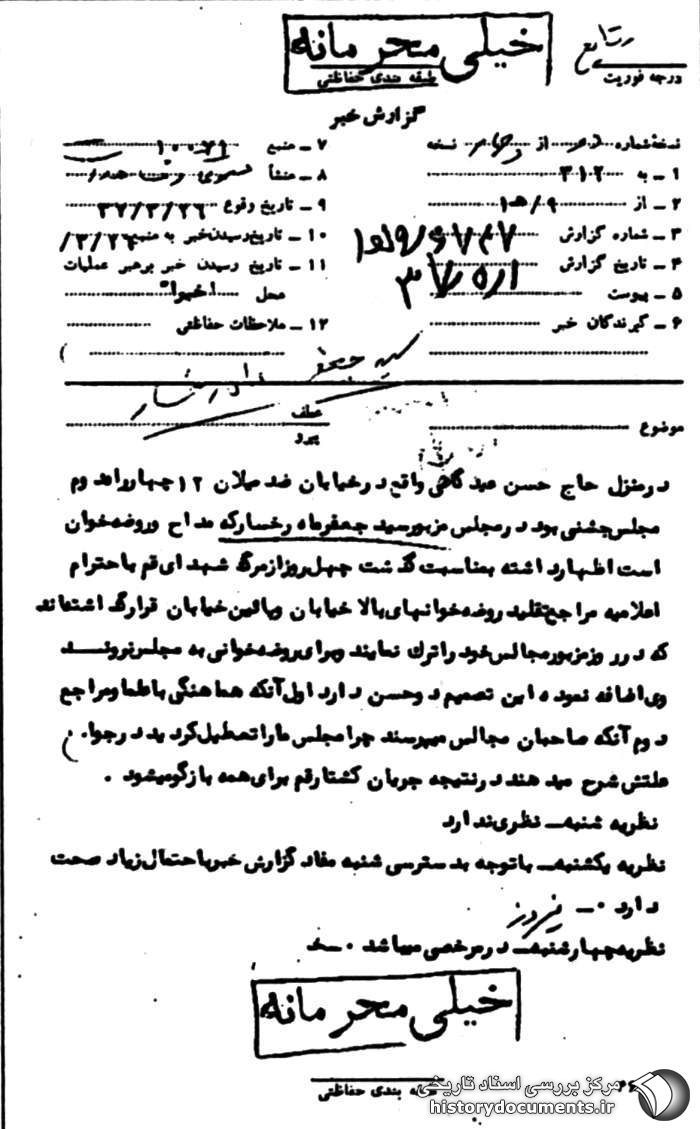 خیلی محرمانه
طبقه بندی حفاظتی
درجه فوریت
گزارش خبر
نسخه شماره از نسخه
۱ ـ به ۳۱۲
۲ ـ از ۹/هـ ۱
۳ ـ شماره گزارش
۴ ـ تاریخ گزارش
۵ ـ پیوست
۶ ـ گیرندگان خبر
۷ ـ منبع
۸ ـ منشأ
۹ ـ تاریخ وقوع ۳۷/۳/۲۶
۱۰ ـ تاریخ رسیدن خبر به منبع
۱۱ ـ تاریخ رسیدن خبر برهبر عملیات
محل اخبوا
۱۲ ـ ملاحظات حفاظتی
سید جعفر
موضوع
عطف
پیرو
درمنزل حاج حسن عیدگاهی واقع درخیابان ضدمیلان ۱۲ چهارراه دوم
مجلس جشنی بود درمجلس مزبور سید جعفر ماه رخسار که مداح وروضه خوان
است اظهارداشته بمناسبت گذشت چهل روز از مرگ شهدای قم با احترام
اعلامیه مراجع تقلید روضه خوانهای بالا خیابان وپائین خیابان قرارگذاشته اند
که درروز مزبور مجالس خود را ترک نمایند وبرای روضه خوانی به مجلس نروند
وی اضافه نموده این تصمیم دوحسن دارد اول آنکه هماهنگی با علما ومراجع
دوم آنکه صاحبان مجالس میپرسند چرا مجلس ما را تعطیل کردید درجواب
علتش شرح میدهند درنتیجه جریان کشتارقم برای همه بازگو میشود .
نظریه شنبه ـ نظری ندارد
نظریه یکشنبه ـ باتوجه بدسترسی شنبه مفاد گزارش خبر با احتمال زیاد صحت
دارد ۰ ـ
نظریه چهارشنبه ـ درمرخصی میباشد ۰ ـ خد
خیلی محرمانه
طبقه بندی حفاظتی
مرکز بررسی اسناد تاریخی
historydocuments.ir